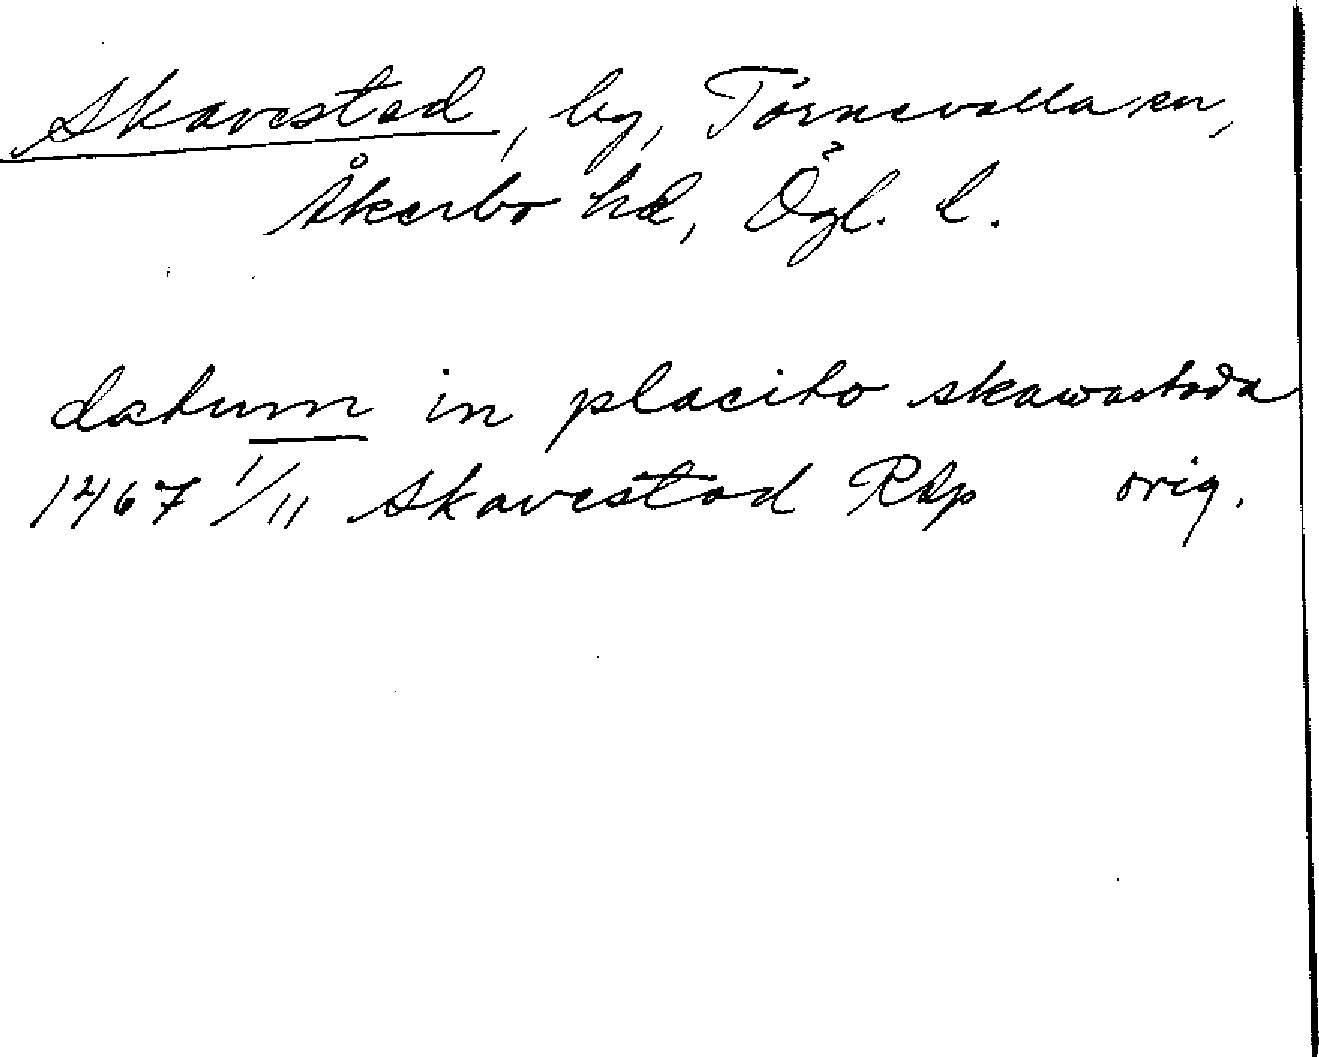 Skavestad, by, Törnevalla sn,
Åkerbo hd, Ögl. l.
datum in placito skawastada
1467 1/11 Skavestad RAp orig.